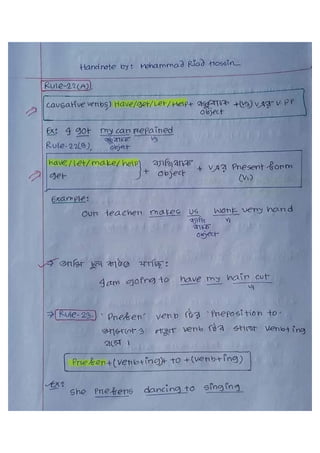 Handnote by: Mohammad Riad Hossin
Rule-22(A)
Causative verbs) Have/get/Let/Help + বস্তুবাচক object + (v₃) v এর v pp
Ex: I got my car repaired
বস্তুবাচক object v₃
Rule-22(B)
have/let/make/help
get
+ ব্যক্তিবাচক object + v এর Present form (v₁)
Example:
Our teacher makes us work very hard
ব্যক্তি বাচক object v₁
→ আমি চুল কাটতে যাচ্ছি:
I am going to have my hair cut
v₃
→ Rule-23: 'Prefer' verb টির 'Preposition to-
verb টির সাথে verb+ing
হবে।
Prefer+(verb+ing)+ to +(verb+ing)
Ex:
She prefers dancing to singing